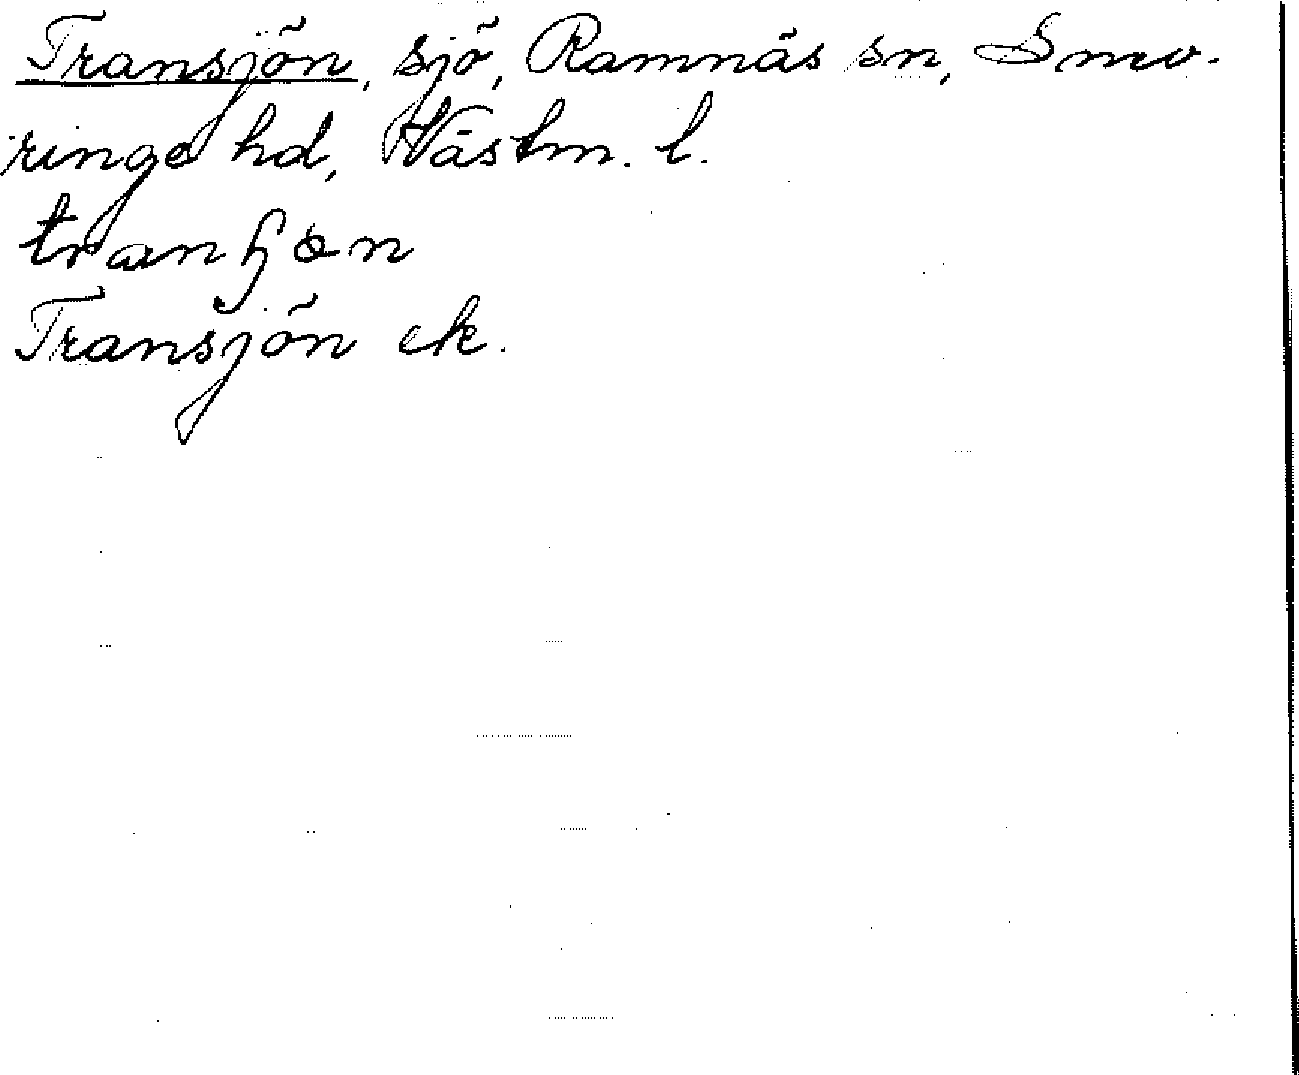 Transjön, sjö, Ramnäs sn, Snev-
ringe hd, Västm. l.
tranɧøn
Transjön ek.